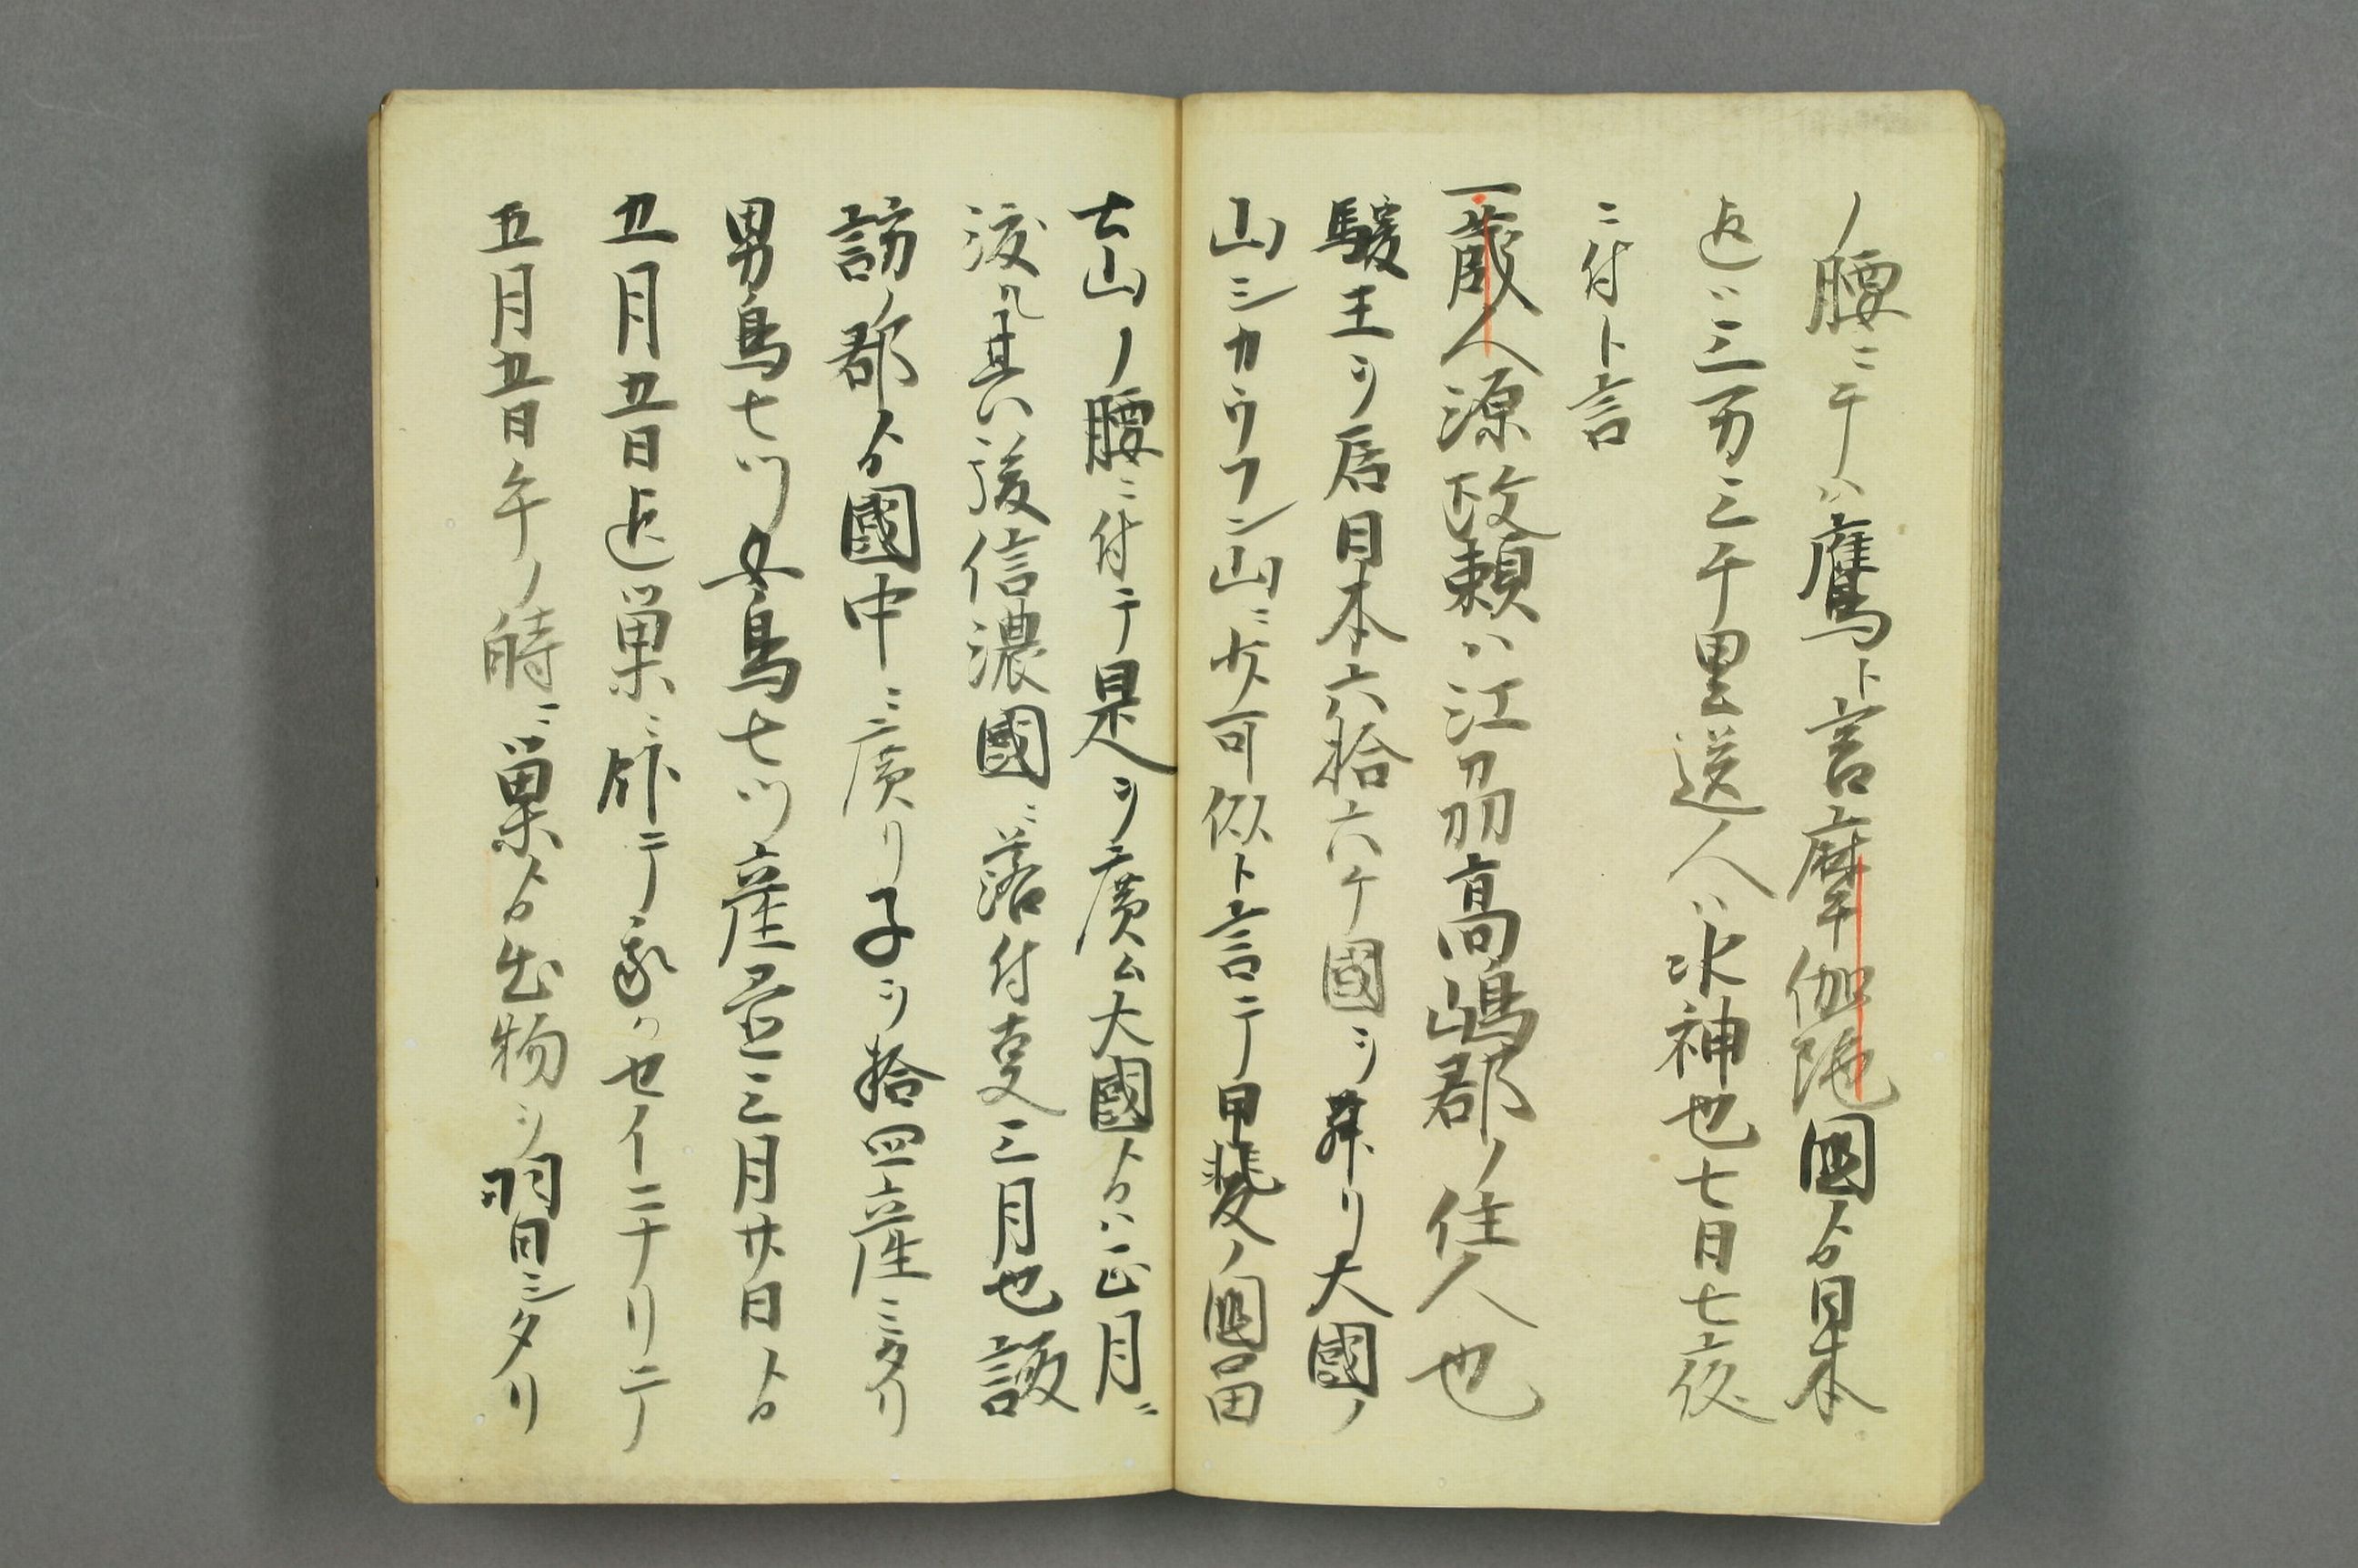 ノ腰ニテハ鷹ト言摩伽陁國ゟ日本
迄ハ三万三千里送人ハ氷神也七日七夜
ニ付ト言
一蔵人源政頼ハ江刕高嶋郡ノ住人也
駿王ヲ居日本六拾六ケ國ヲ舞リ大國ノ
山シカウフン山ニ少可似ト言テ甲斐ノ國冨
士山ノ腰ニ付テ是ヲ廣ム大國ゟハ正月ニ
渡ル其ハ後信濃國ニ落付支三月也諏
訪ノ郡ゟ國中ニ廣リ子ヲ拾四産ミタリ
男鳥七ツ女鳥七ツ産是三月廿日ゟ
五月五日迄ハ巣ニテカセイニナリテ
五月五日午ノ時ニ巣ゟ出物ヲ習シタリ